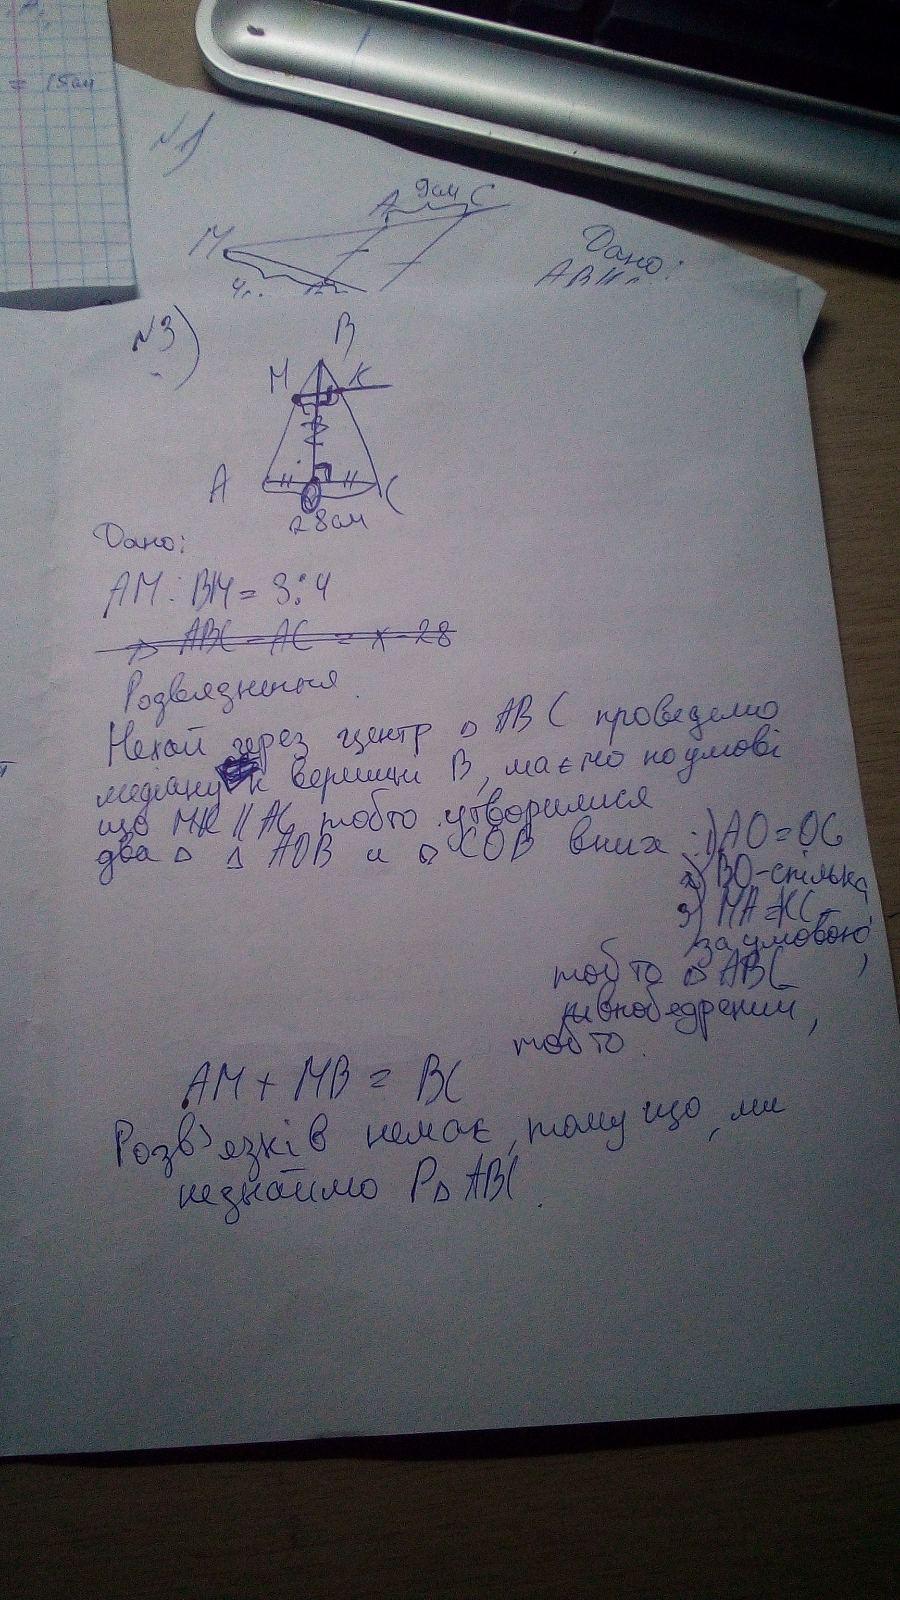 = 15см
№1)
9см
A C
M
Дано:
AB ||
№3)
B
M K
A C
28см
Дано:
AM : BM = 3:4
△ ABC = AC = x - 28
Розвязнення.
Нехай через центр △ ABC проведемо
медіану к вершини B, маємо по умові
що MK || AC тобто утворилися
два △ △ AOB и △ COB в них : 1) AO = OC
2) BO - спільна,
3) MA = KC -
за умовою,
тобто △ ABC
рівнобедрений,
тобто.
AM + MB = BC
Розв'язків немає, тому що, ми
незнаймо P△ABC.